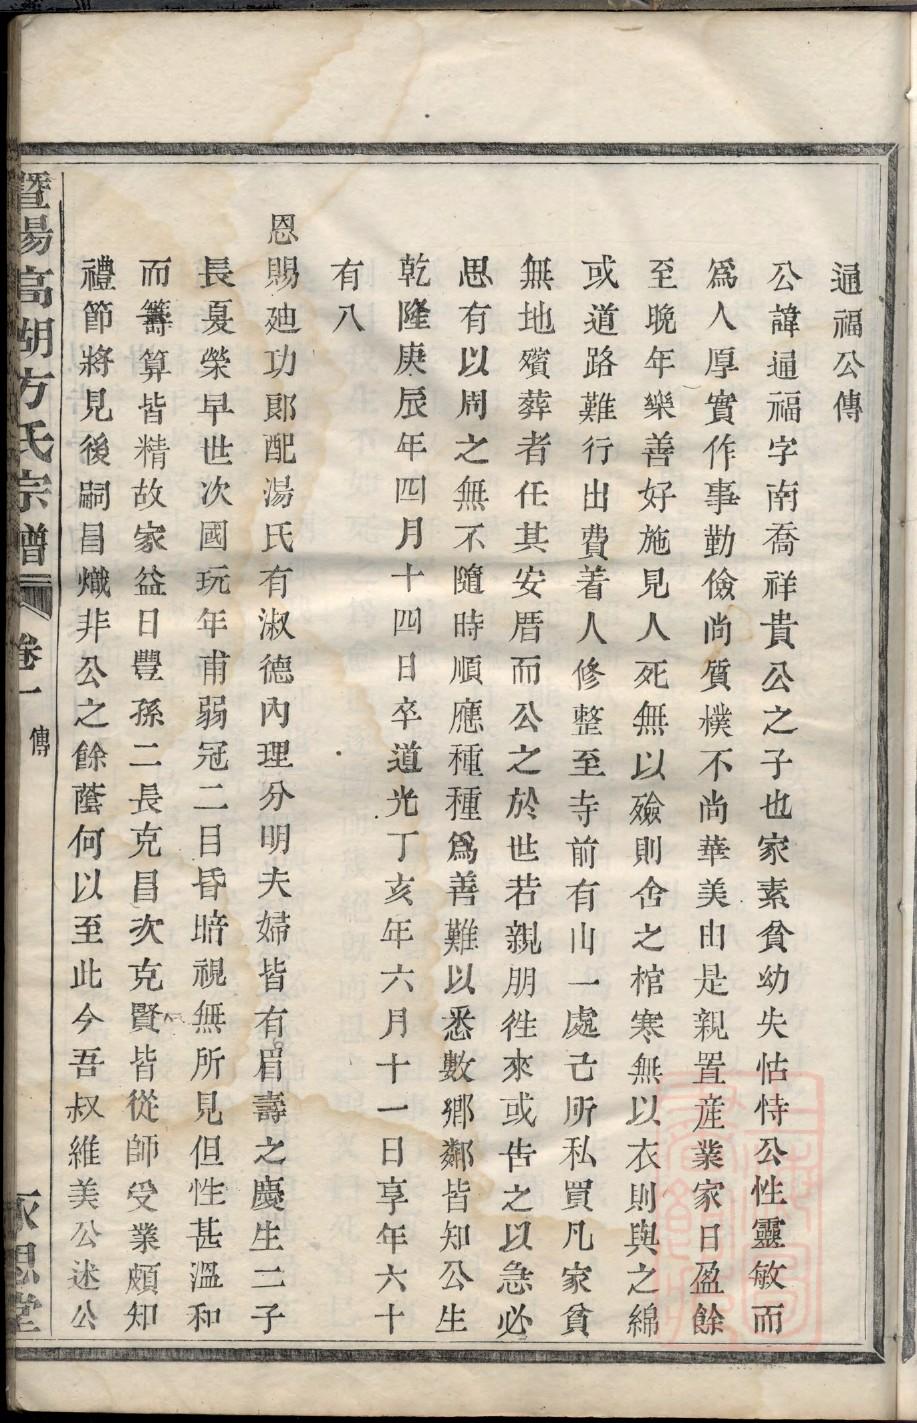 通福公傳
公諱通福字南喬祥貴公之子也家素貧幼失怙恃公性靈敏而
爲人厚實作事勤儉尚質樸不尚華美由是親置産業家日盈餘
至晚年樂善好施見人死無以殮則舍之棺寒無以衣則與之綿
或道路難行出費着人修整至寺前有山一處己所私買凡家貧
無地殯葬者任其安厝而公之於世若親朋徃來或告之以急必
思有以周之無不隨時順應種種爲善難以悉數鄉鄰皆知公生
乾隆庚辰年四月十四日卒道光丁亥年六月十一日享年六十
有八
恩賜廸功郎配湯氏有淑德內理分明夫婦皆有眉壽之慶生二子
長夏榮早世次國玩年甫弱冠二目昏暗視無所見但性甚溫和
而籌算皆精故家益日豐孫二長克昌次克賢皆從師受業頗知
禮節將見後嗣昌熾非公之餘蔭何以至此今吾叔維美公述公
暨陽高湖方氏宗譜 卷一 傳 永思堂